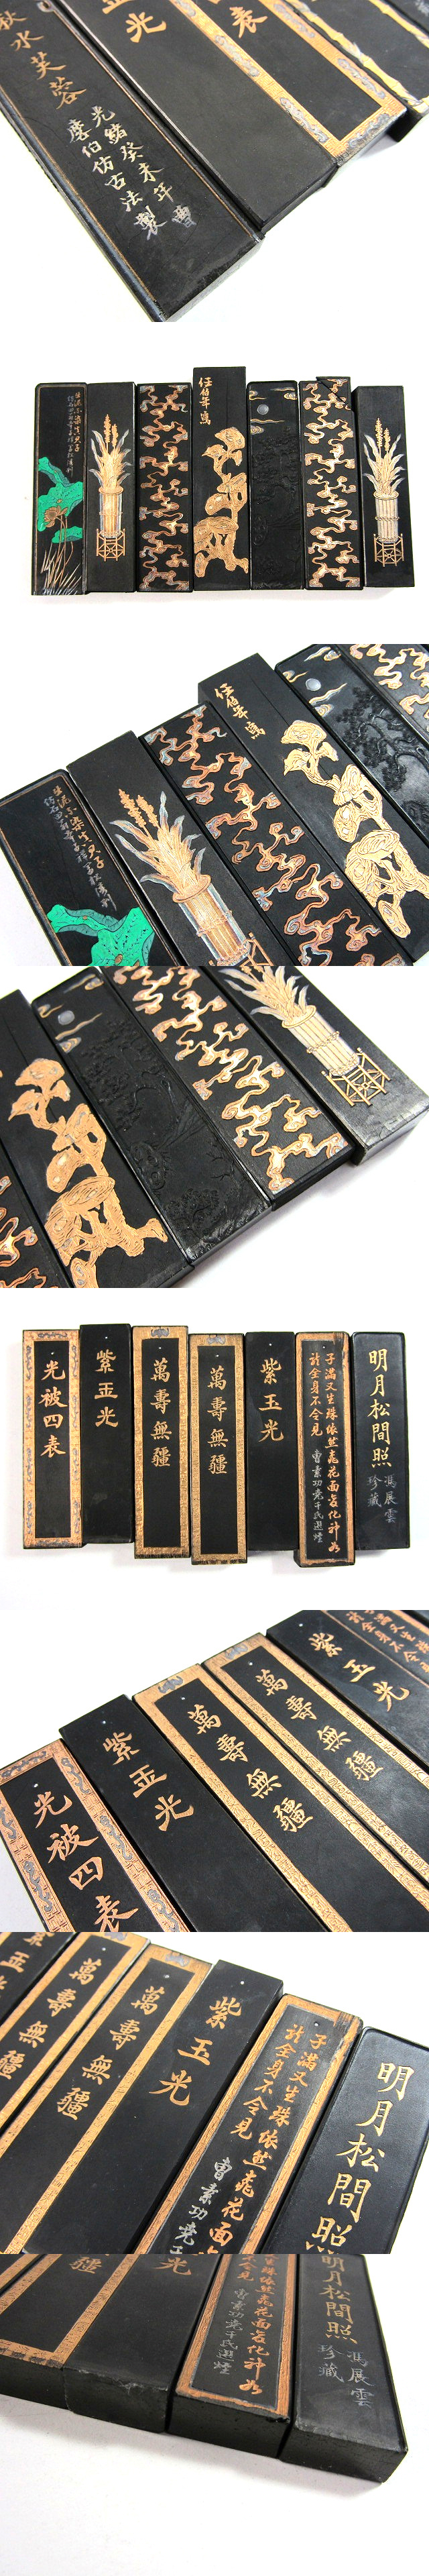 秋水芙蓉
光緒癸未年曹
摩伯仿古法製
光
表
任伯年寫
任伯年寫
光被四表
紫玉光
萬壽無疆
萬壽無疆
紫玉光
子滿又生珠依然
於全身不令見
曹素功堯千氏選煙
明月松間照
馮展雲
珍藏
光被四表
紫玉光
萬壽無疆
萬壽無疆
紫玉光
萬壽無疆
萬壽無疆
紫玉光
子滿又生珠依然
於全身不令見
曹素功堯
明月松間照
疆
光
曹素功堯千氏選煙
明月松間照
馮展雲
珍藏